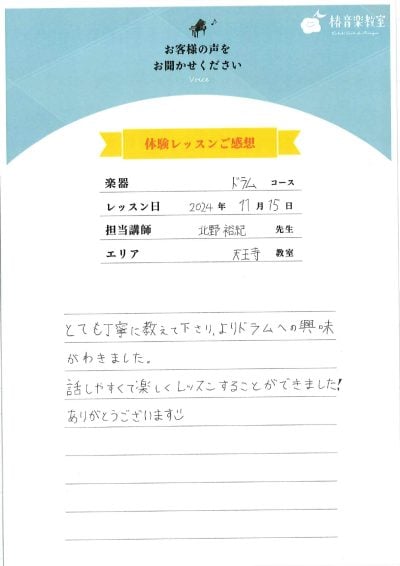 椿音楽教室
お客様の声を
お聞かせください
Voice
体験レッスンご感想
楽器 ドラム コース
レッスン日 2024 年 11 月 15 日
担当講師 北野 裕紀 先生
エリア 天王寺 教室
とても丁寧に教えて下さり、よりドラムへの興味
がわきました。
話しやすくて楽しくレッスンすることができました!
ありがとうございます